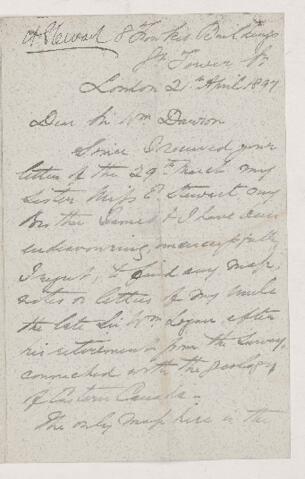 A Stewart 8 Fowkes Buildings
Gt Tower St.
London 21st April 1897
Dear Sir Wm Dawson
Since I received your
letter of the 29th March my
Sister Miss E Stewart my
Brother James & I have been
endeavouring, unsuccessfully
I regret, to find any maps,
notes or letters of my Uncle
the late Sir Wm Logan after
his retirement from the Survey,
connected with the geology
of Eastern Canada.
The only map here is the